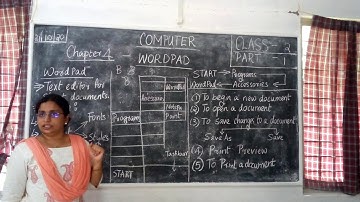 COMPUTER
CLASS - 3
PART - 1
Chapter 1
WORDPAD
WordPad
Text editor for
documents.
Fonts
Styles
B
B
Programs
START
Paint
Taskbar
START → Programs
WordPad ← Accessories
(1) To begin a new document
(2) To open a document
(3) To save changes to a document
Save As
Save
(4) Print Preview
(5) To Print a document